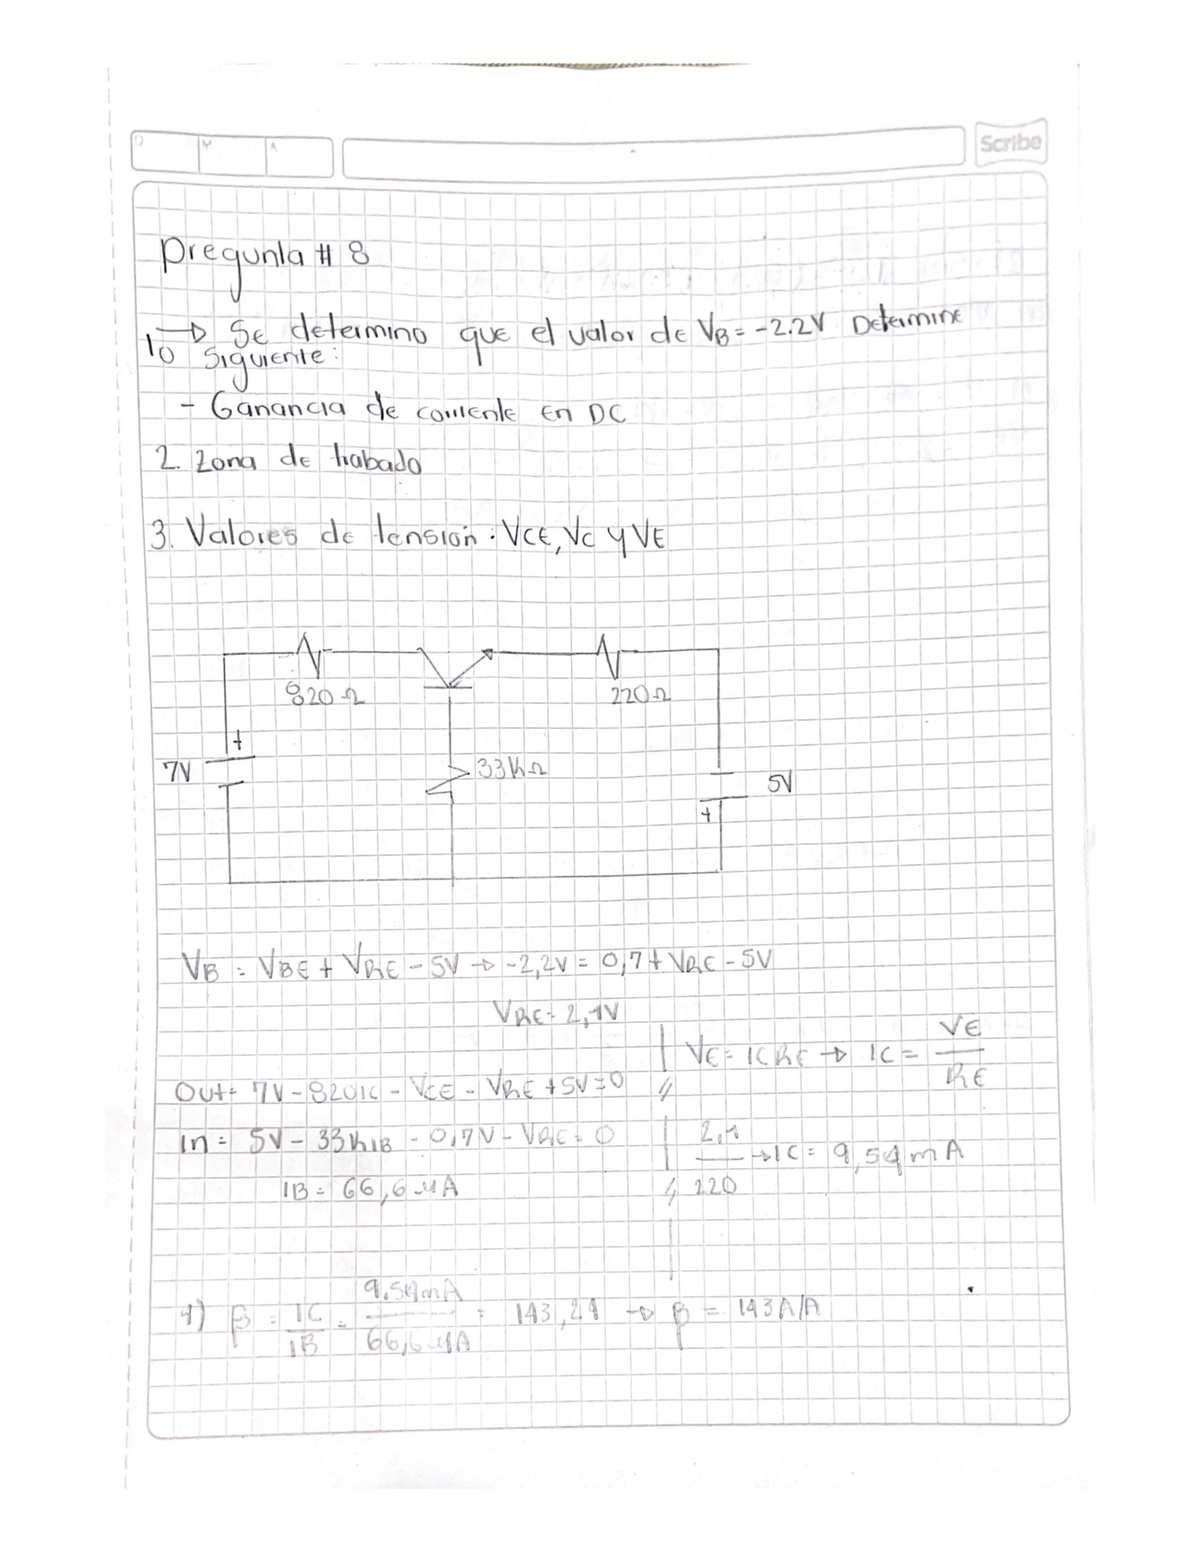 D M A
Scribe
Pregunta # 8
→ Se determino que el valor de VB = -2.2V Determine
lo siguiente:
- Ganancia de corriente en DC
2. Zona de trabado
3. Valores de tensión: VCE, VC y VE
820Ω 220Ω
+
7V 33kΩ 5V
+
VB = VBE + VRE - 5V → -2,2V = 0,7 + VRE - 5V
VRE = 2,1V
VE = ICRE → IC = VE/RE
Out = 7V - 820IC - VCE - VRE + 5V = 0
In = 5V - 33kIB - 0,7V - VRE = 0
2,1/220 → IC = 9,54mA
IB = 66,6 μA
1) β = IC/IB = 9,54mA/66,6μA = 143,24 → β = 143A/A